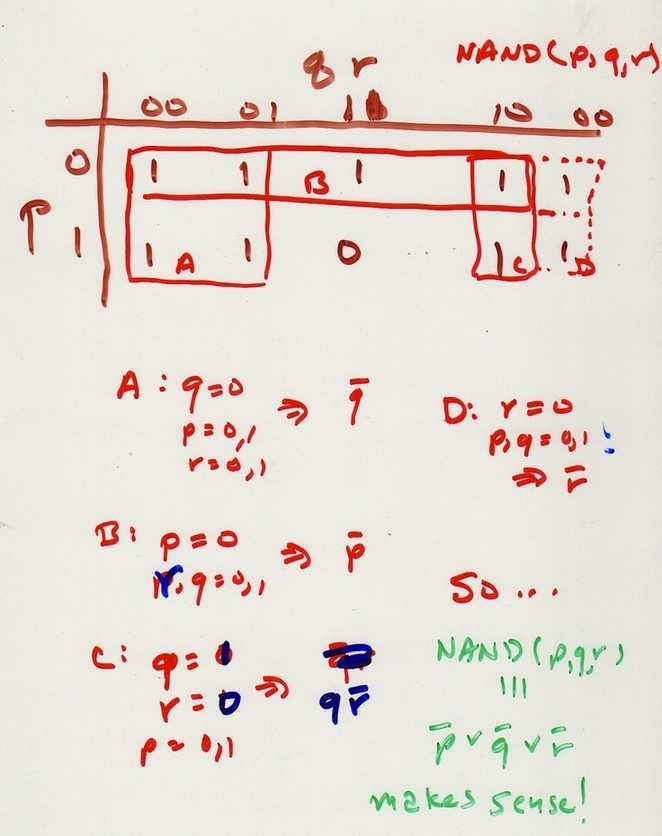 NAND(p,q,r)
q r
00 01 11 10 00
0 1 1 B 1 1 1
P 1 1 A 1 0 1 C 1 D
A: q=0 ⇒ q̄
p=0,1
r=0,1
D: r=0
p,q=0,1 !
⇒ r̄
B: p=0 ⇒ p̄
r,q=0,1
C: q=1
r=0 ⇒ qr̄
p=0,1
So ...
NAND(p,q,r)
|||
p̄ ∨ q̄ ∨ r̄
makes sense!